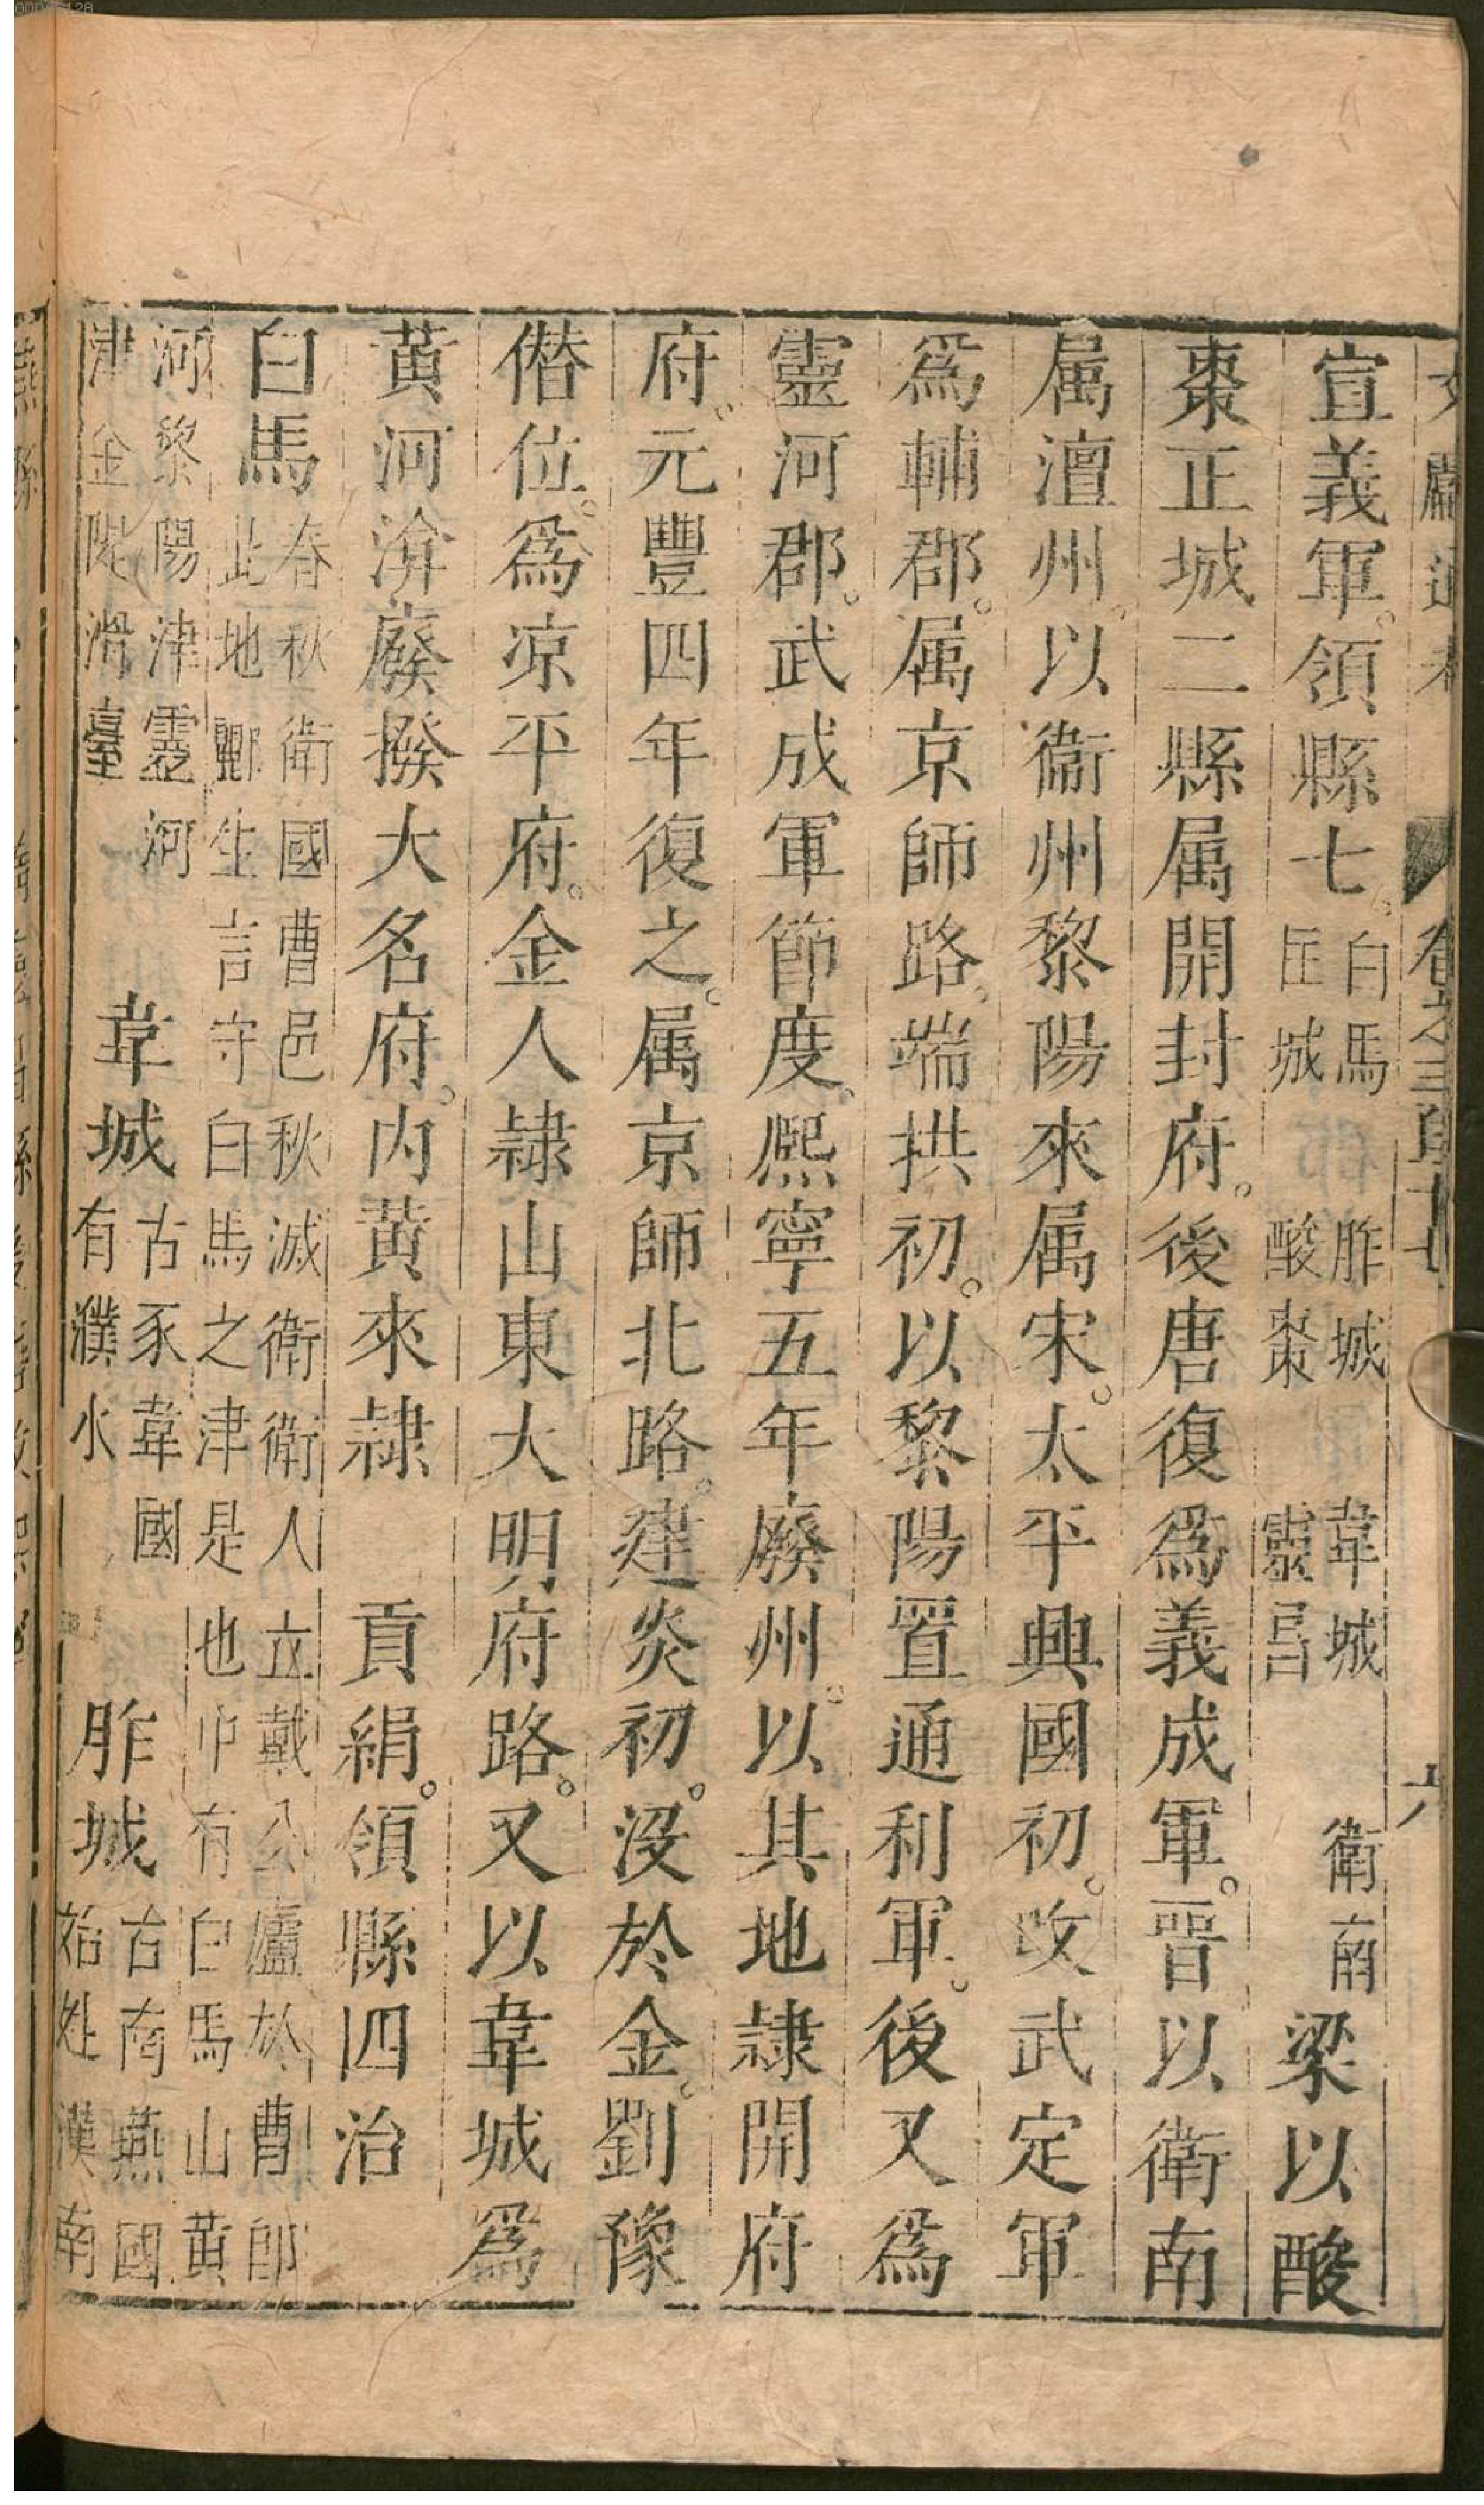 文獻通考 卷之三百十七 六
宣義軍。領縣七。白馬 胙城 韋城 衛南 匡城 酸棗 靈昌 梁以酸
棗正城二縣属開封府。後唐復爲義成軍。晉以衛南
属澶州。以衞州黎陽來属宋。太平興國初。改武定軍
爲輔郡。属京師路。端拱初。以黎陽置通利軍。後又爲
靈河郡。武成軍節度。熈寧五年廢州。以其地隷開府
府。元豐四年復之。属京師北路。建炎初。沒於金。劉豫
僣位。爲凉平府。金人隷山東大明府路。又以韋城爲
黃河渰廢撥大名府。内黄來隷 貢絹。領縣四治
白馬 春秋衛國曹邑秋滅衛衛人立戴公廬於曹卽
此地酈生言守白馬之津是也 有白馬山黃
河黎陽津靈河
津金隄滑臺
韋城 古豕韋國
有濮水
胙城 古南燕國
姞姓漢南